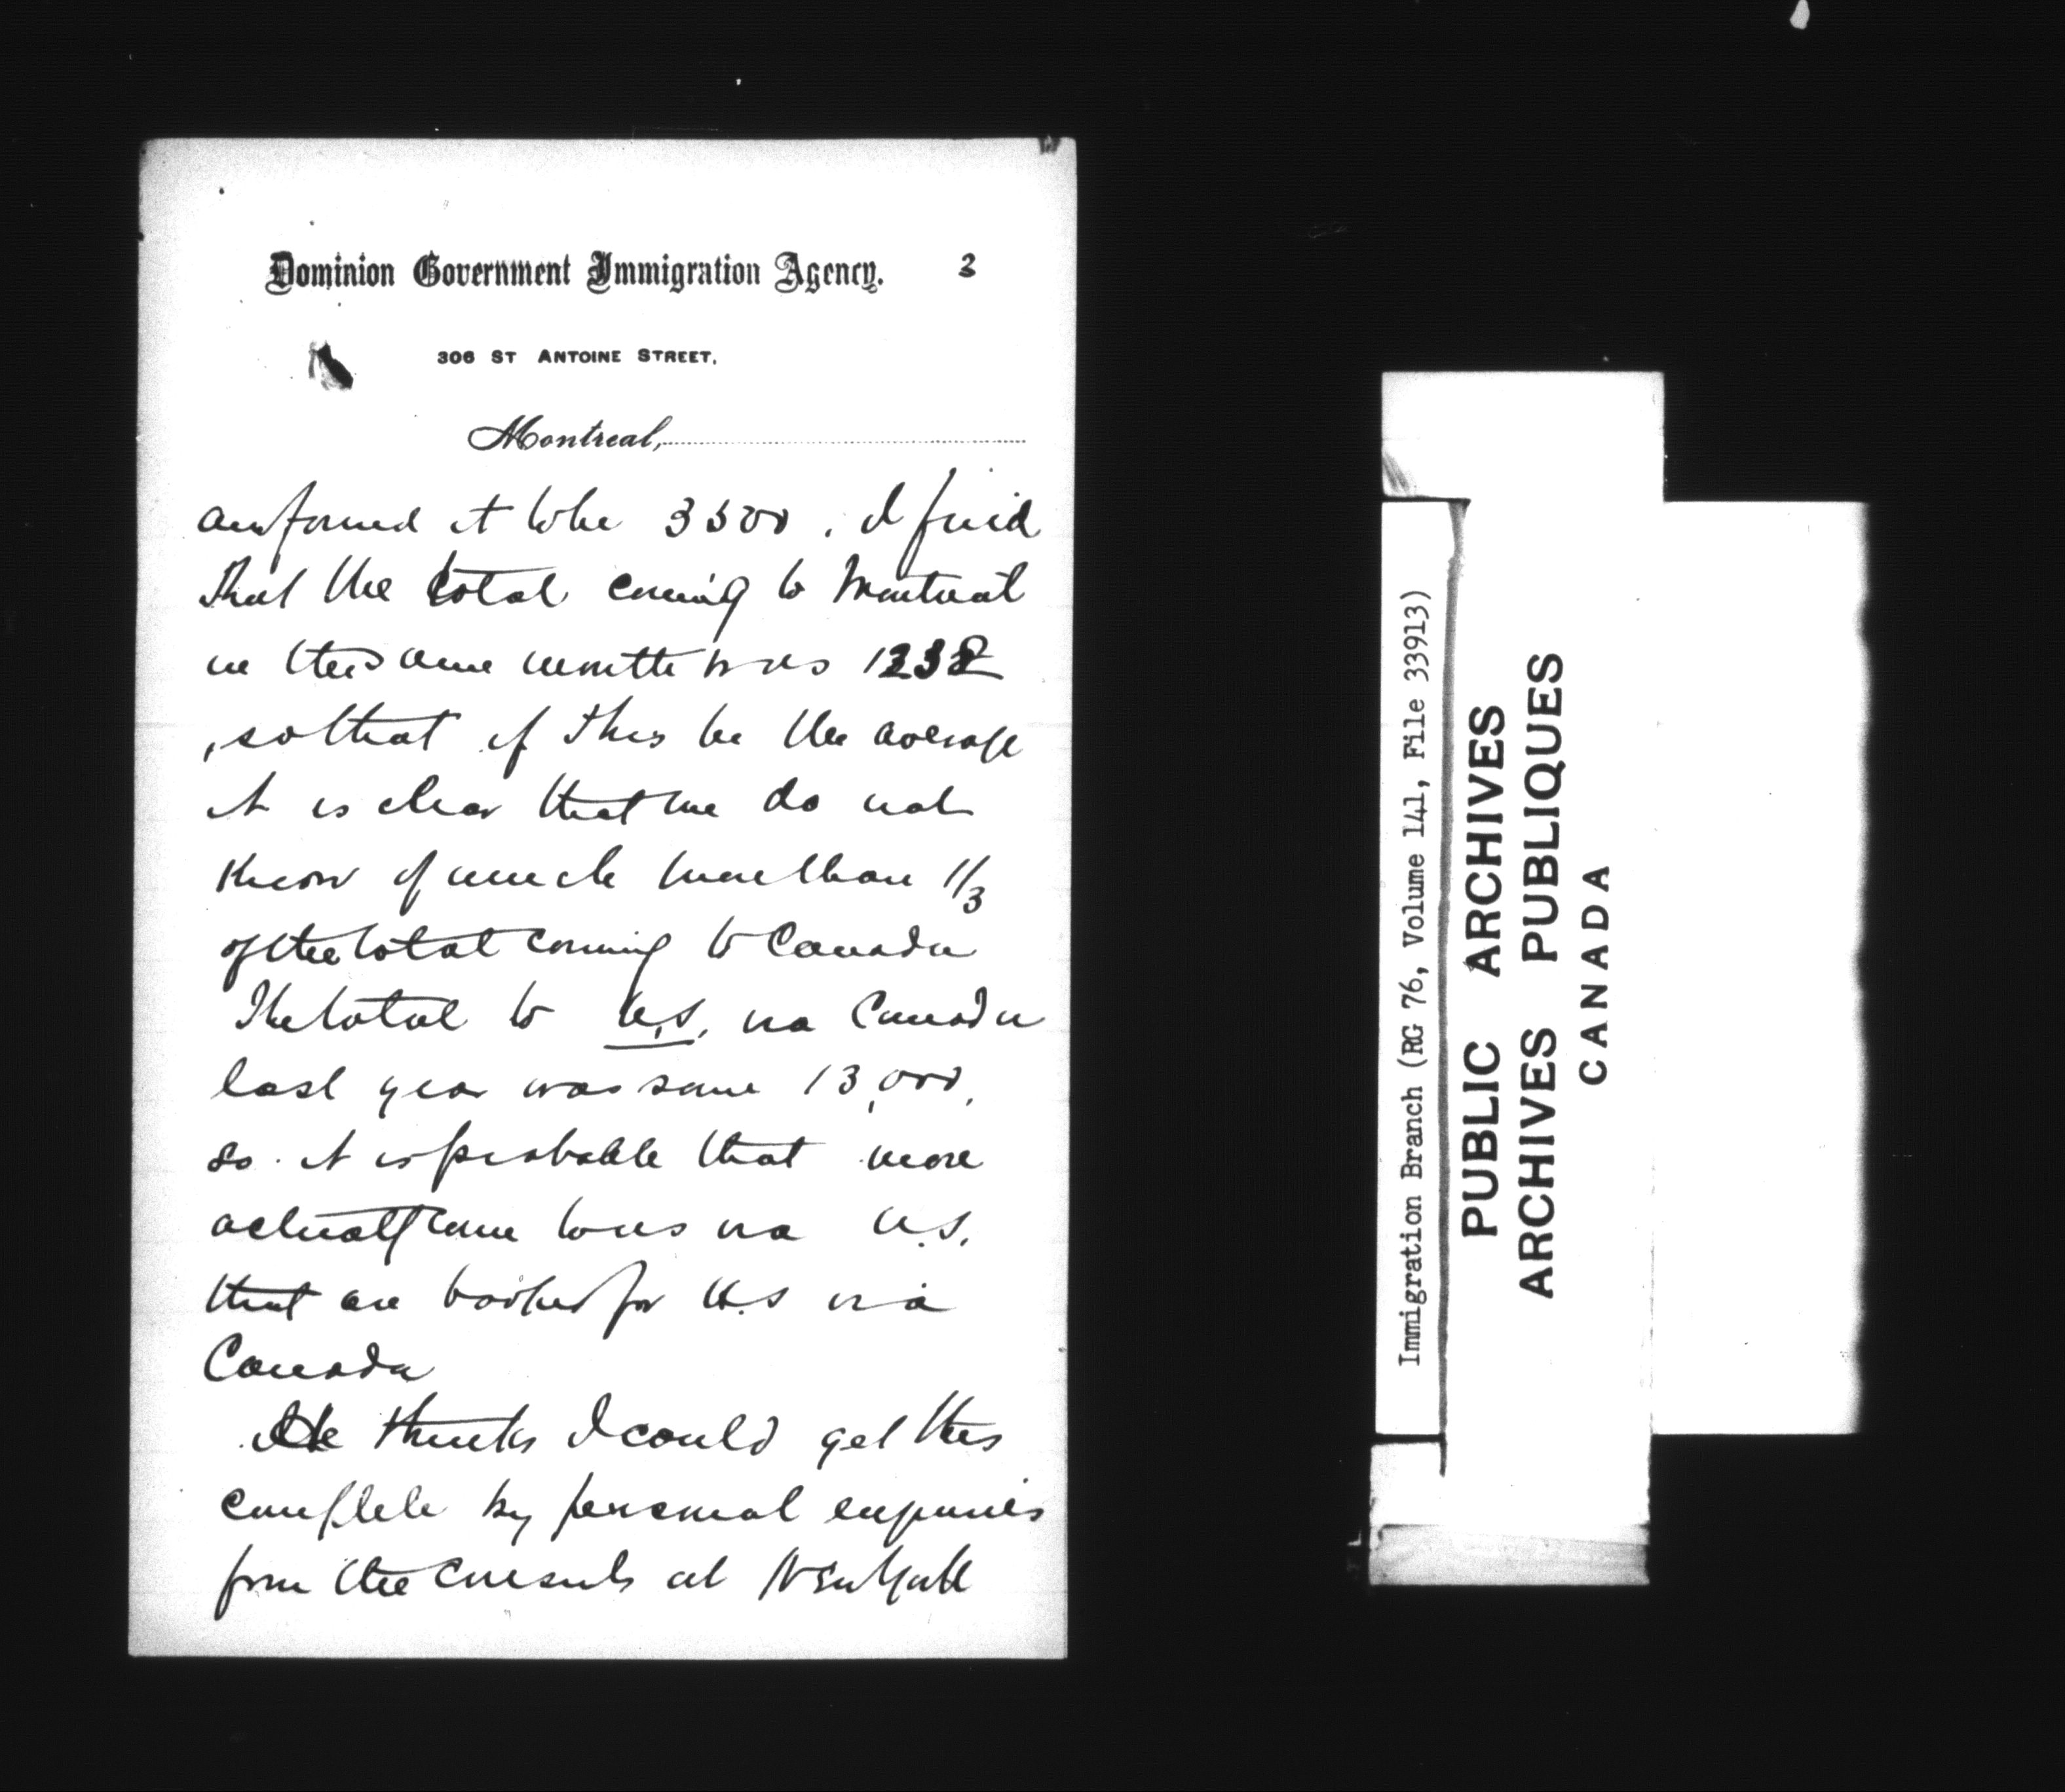 Dominion Government Immigration Agency. 3
306 ST ANTOINE STREET,
Montreal,
it to be 3500. I find
that the total coming to Montreal
in the same month was 1232
, so that if this be the average
it is clear that we do not
know of much more than 1/3
of the total coming to Canada
The total to U.S. via Canada
last year was some 13,000,
so it is probable that more
actually come to us via U.S.
that are booked for U.S via
Canada
He thinks I could get this
complete by personal enquiries
from the consuls at New York
Immigration Branch (RG 76, Volume 141, File 33913)
PUBLIC ARCHIVES
ARCHIVES PUBLIQUES
CANADA